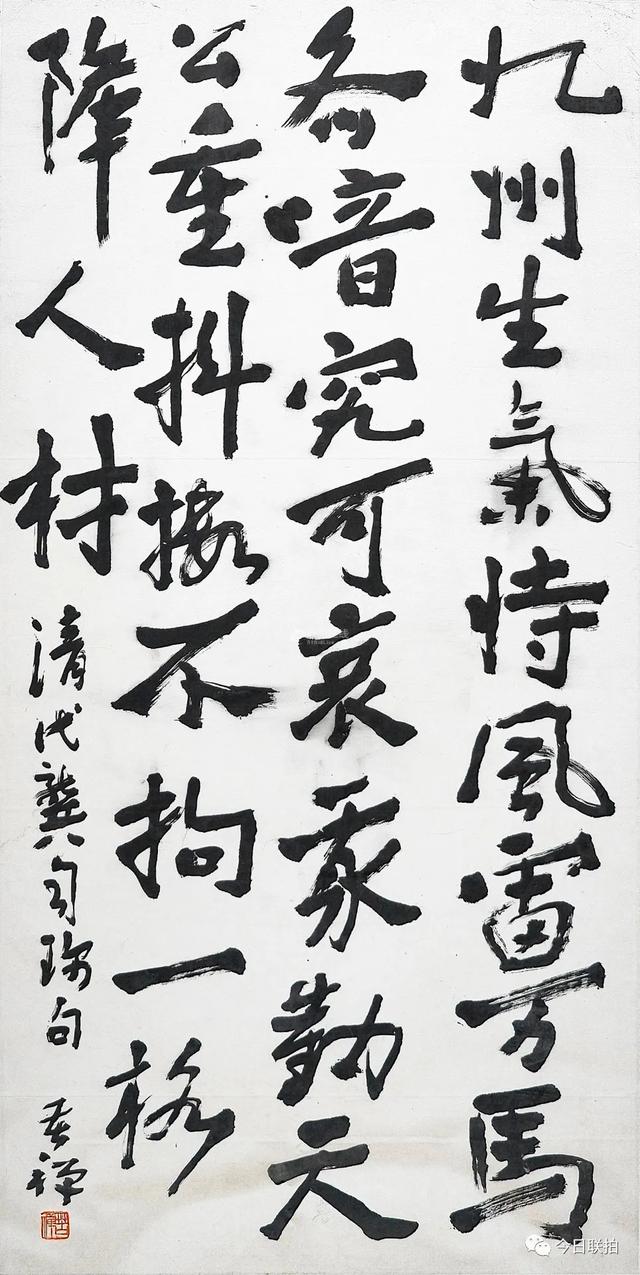 九州生氣恃風雷万馬
齐喑究可哀我勸天
公重抖擞不拘一格
降人材
清代龔自珍句
苦禅
今日联拍